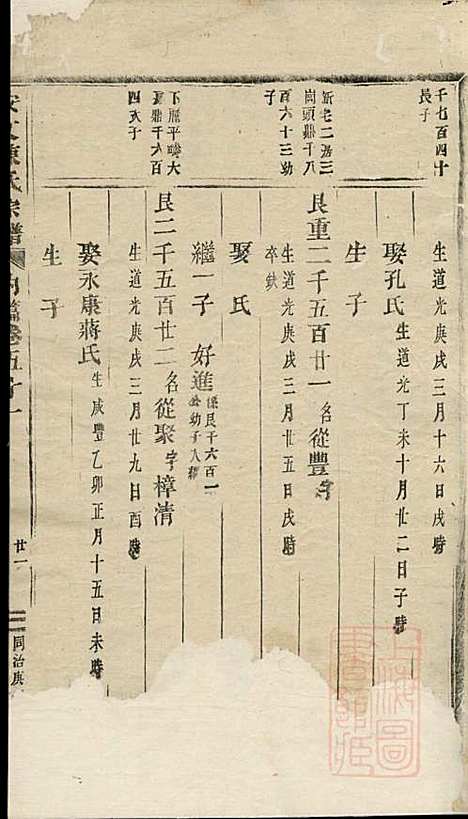 千七百四十
長子
生道光庚戌三月十六日戌時
娶孔氏 生道光丁未十月廿二日子時
生子
良重二千五百廿一 名從豐 字
岡頭鼎千八
百六十三幼
子
生道光庚戌三月廿五日戌時
卒缺
娶氏
繼一子 好進 係良千六百一
公幼子入繼
良二千五百廿二 名從聚 字樟清
下鼎平大
鼎千六百
四次子
生道光庚戌三月廿九日酉時
娶永康蔣氏 生咸豐乙卯正月十五日未時
生子
陳氏宗譜
內篇卷五十一
廿一
同治庚
上海圖書館藏